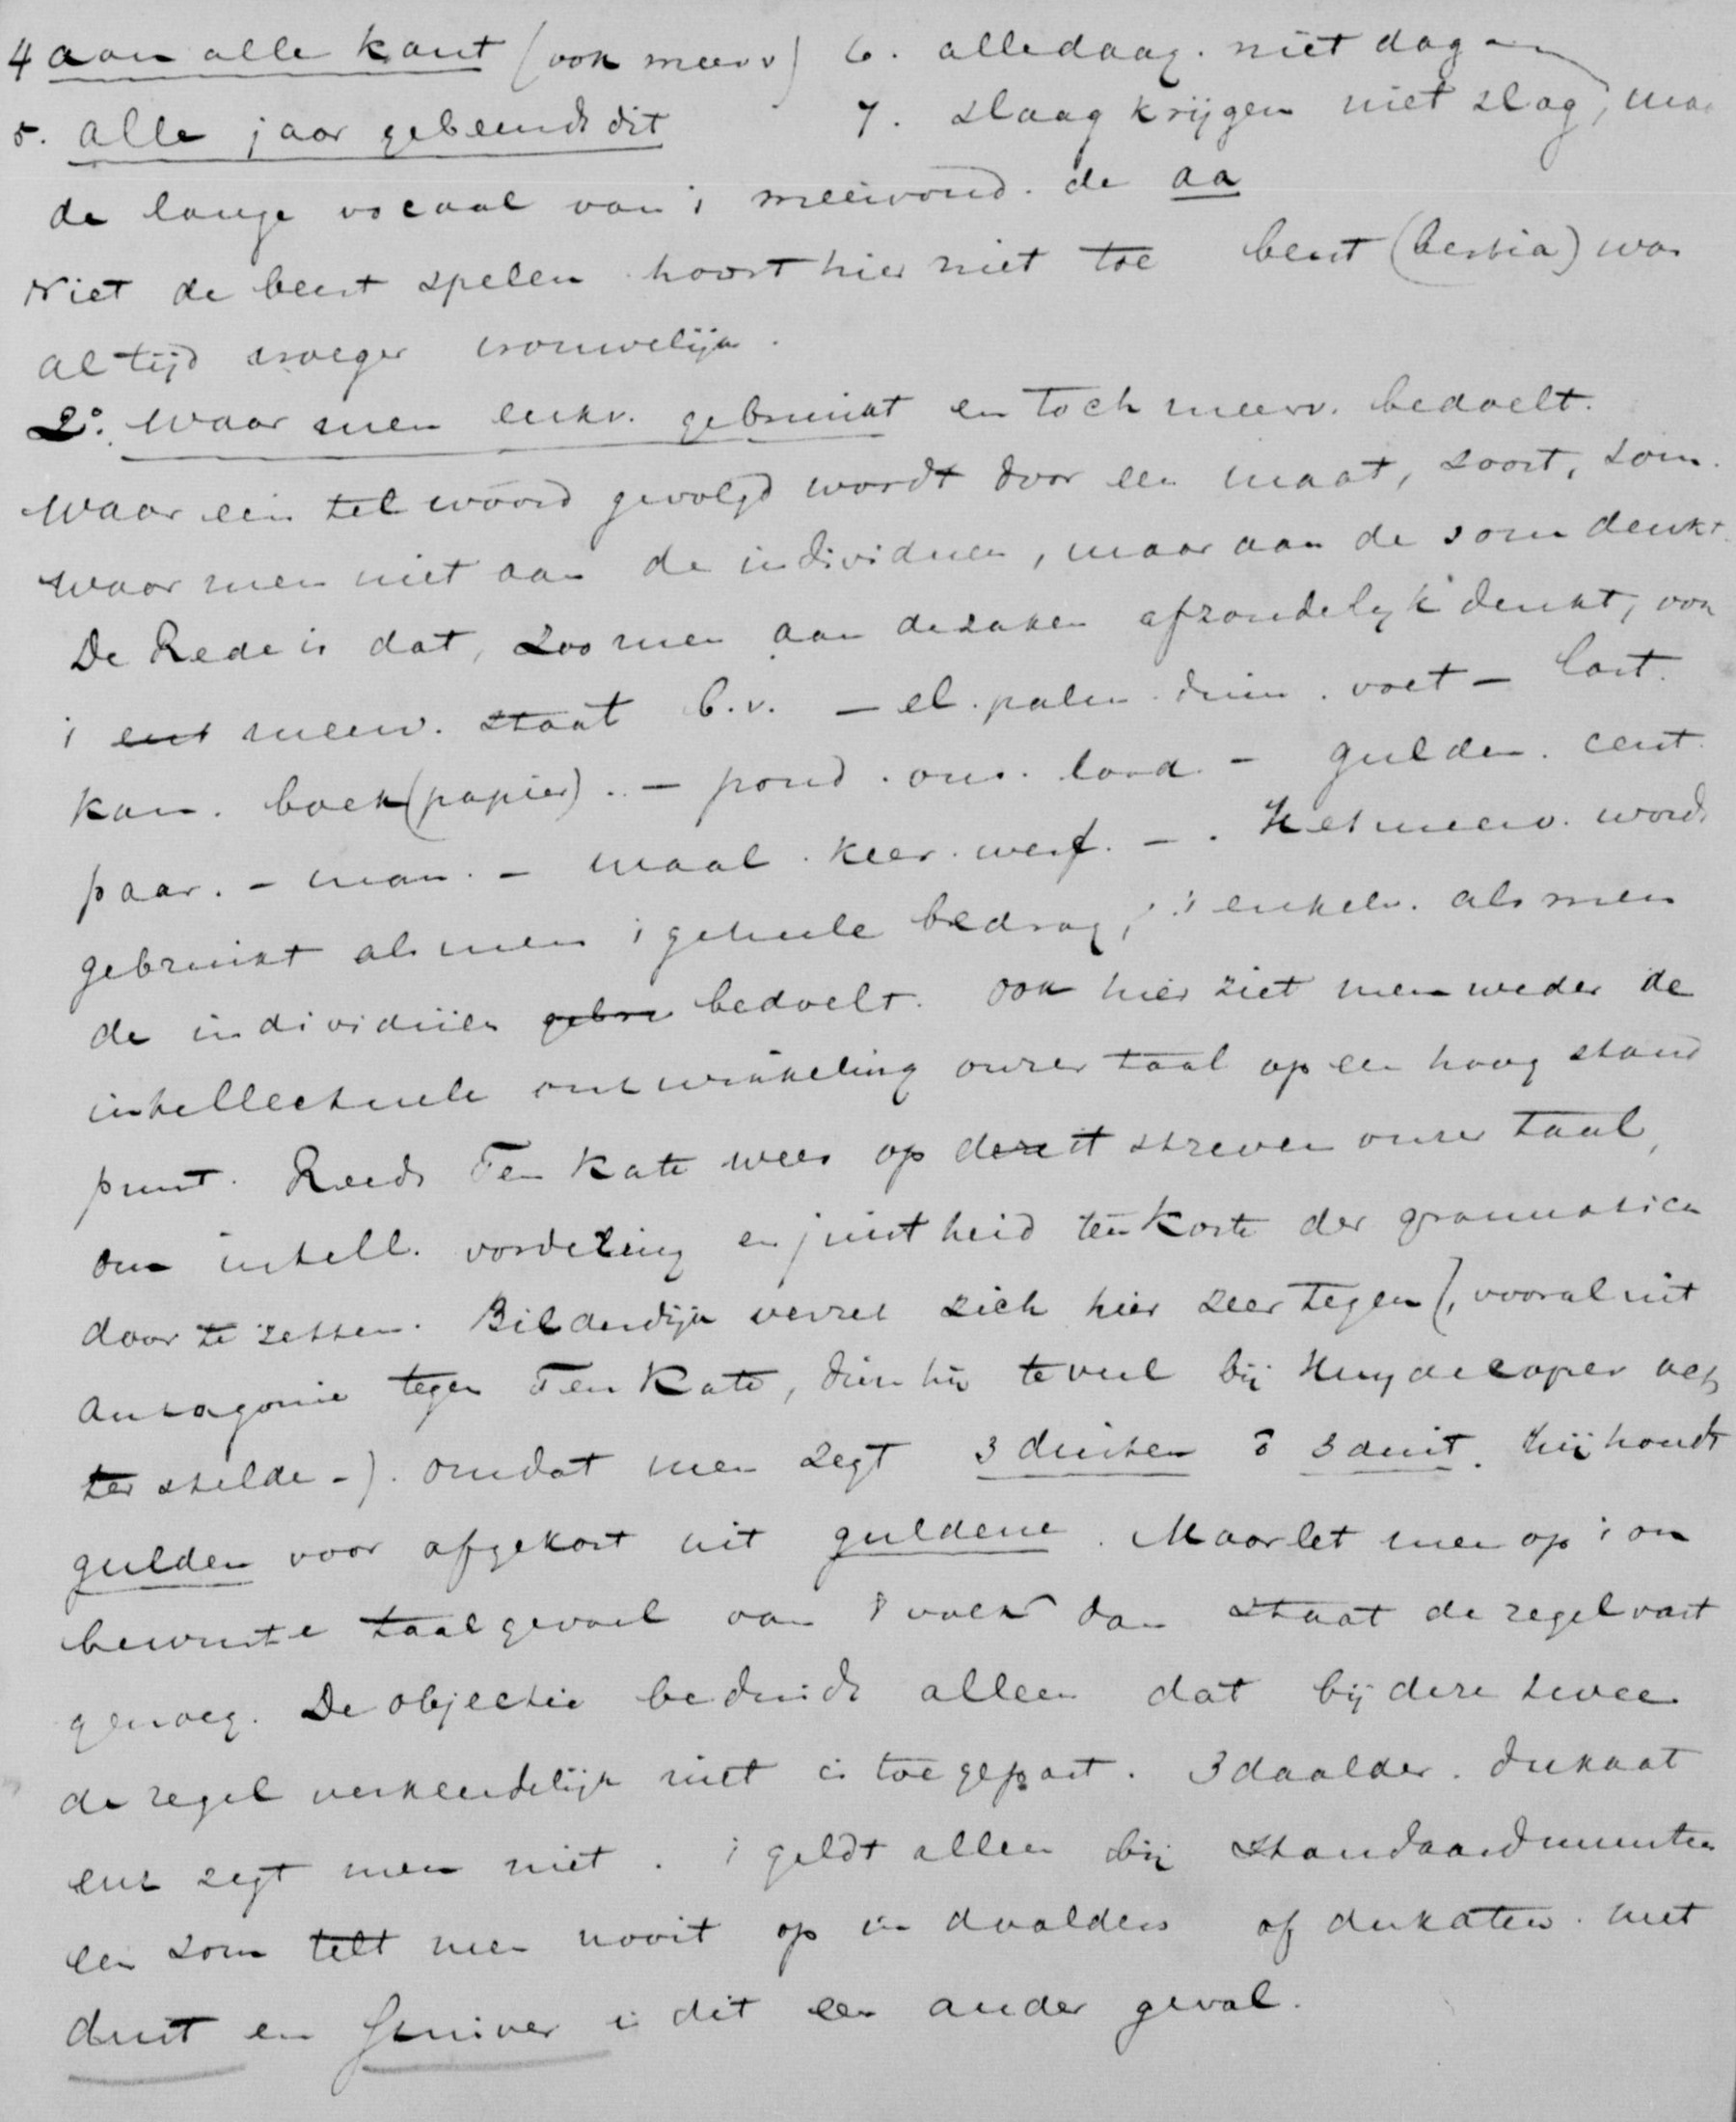 4 aan alle kant (ook meerv) 6. alledaag. niet dagen
5. alle jaar gebeurds dit 7. slaag krijgen niet slag, maa
de lange vocaal van i meervoud. de aa
Niet de beest spelen hoort hier niet toe beest (bestia) was
altijd vroeger vrouwelijk.
2°. Waar men enkv. gebruikt en toch meerv. bedoelt.
Waar een telwoord gevolgd wordt door een maat, soort, som.
waar men niet aan de individuen, maar aan de som denkt.
De Rede is dat, zoo men aan de zaken afzondelijk denkt, ook
i meerv. staat b.v. – el. palm. duim. voet – last.
kan. boek (papier). – pond. ons. lood. – gulden. cent.
paar. – man. – maal. keer. werf. –. Het meerv. wordt
gebruikt als men i geheele bedrag, i enkelv. als men
de individuën gebru bedoelt. Ook hier ziet men weder de
intellectuele ontwikkeling onzer taal op een hoog stand
punt. Reeds Ten Kate wees op dit streven onzer taal,
om intell. vordering en juistheid ten koste der grammatica
door te zetten. Bilderdijk verzet zich hier zeer tegen (, vooral uit
antagonie tegen Ten Kate, dien hij te veel bij Huydecoper ach
ter stelde -). omdat men zegt 3 duiten o 3 duit. hij houdt
gulden voor afgekort uit guldene. Maar let men op i on
bewuste taalgevoel van i volk dan staat de regel vast
genoeg. De objectie beduidt alleen dat bij deze twee
de regel verkeerdelijk niet is toegepast. 3 daalder. dukaat
enz zegt men niet. i geldt alleen bij standaardmunten
een som telt men nooit op in daalders of dukaten. met
duit en stuiver is dit een ander geval.